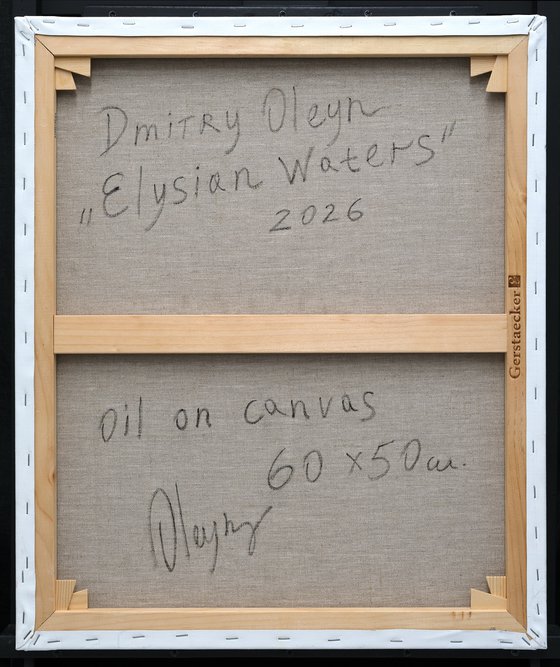 Dmitry Oleyn
„Elysian Waters"
2026
Gerstaecker
oil on canvas
60 x 50 см.
Oleyn